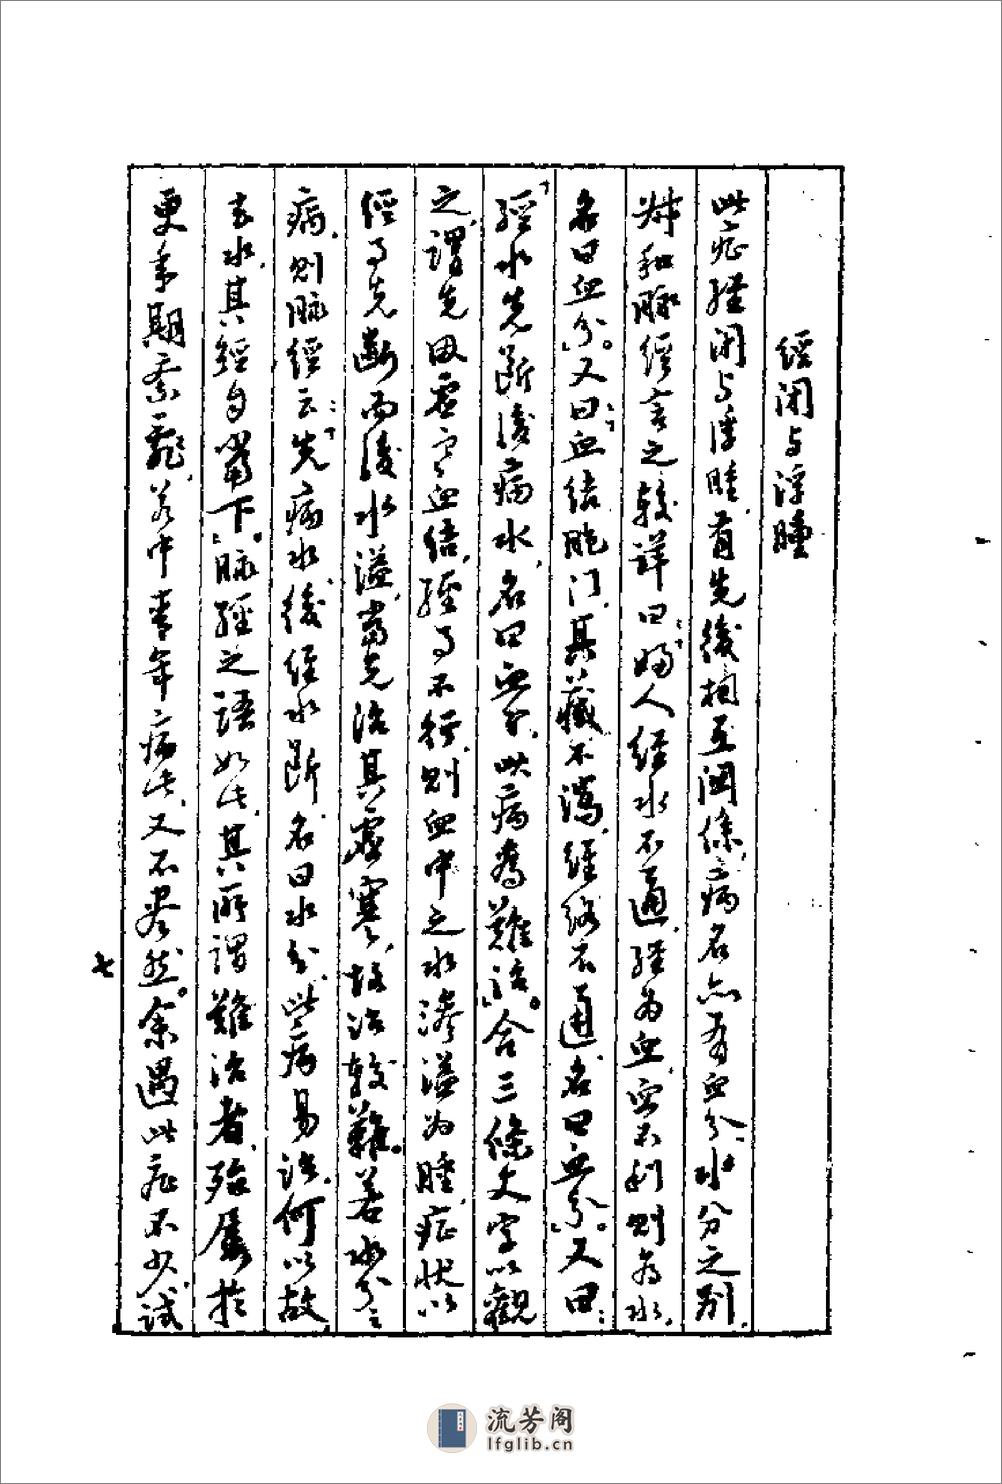 經閉与浮腫
此症經閉与浮腫，有先後相互関係，病名亦有血分、水分之別，
叔和脉經言之較詳，曰：「婦人經水不通，經為血，血不利則為水，
名曰血分。」又曰：「血結胞门，其藏不瀉，經絡不通，名曰血分。」又曰：
「經水先断，後病水，名曰血分，此病為難治。」合三條文字以觀
之，謂先因虛寒血結，經事不行，則血中之水滲溢为腫，症状以
經事先斷而後水溢，當先治其虛寒，故治較難。若水分之
病，則脉經云：「先病水，後經水断，名曰水分，此病易治，何以故，
去水，其經自當下。」脉經之語如此，其所謂難治者，殆屬於
更年期紊亂，若中青年病此，又不尽然。余遇此症不少，试
七
流芳阁
lfglib.cn